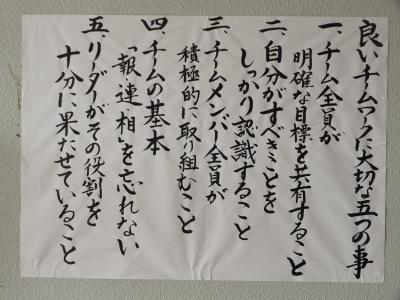 良いチームワークに大切な五つの事
一、チーム全員が
明確な目標を共有すること
二、自分がすべきことを
しっかり認識すること
三、チームメンバー全員が
積極的に取り組むこと
四、チームの基本
「報・連・相」を忘れない
五、リーダーがその役割を
十分に果たせていること